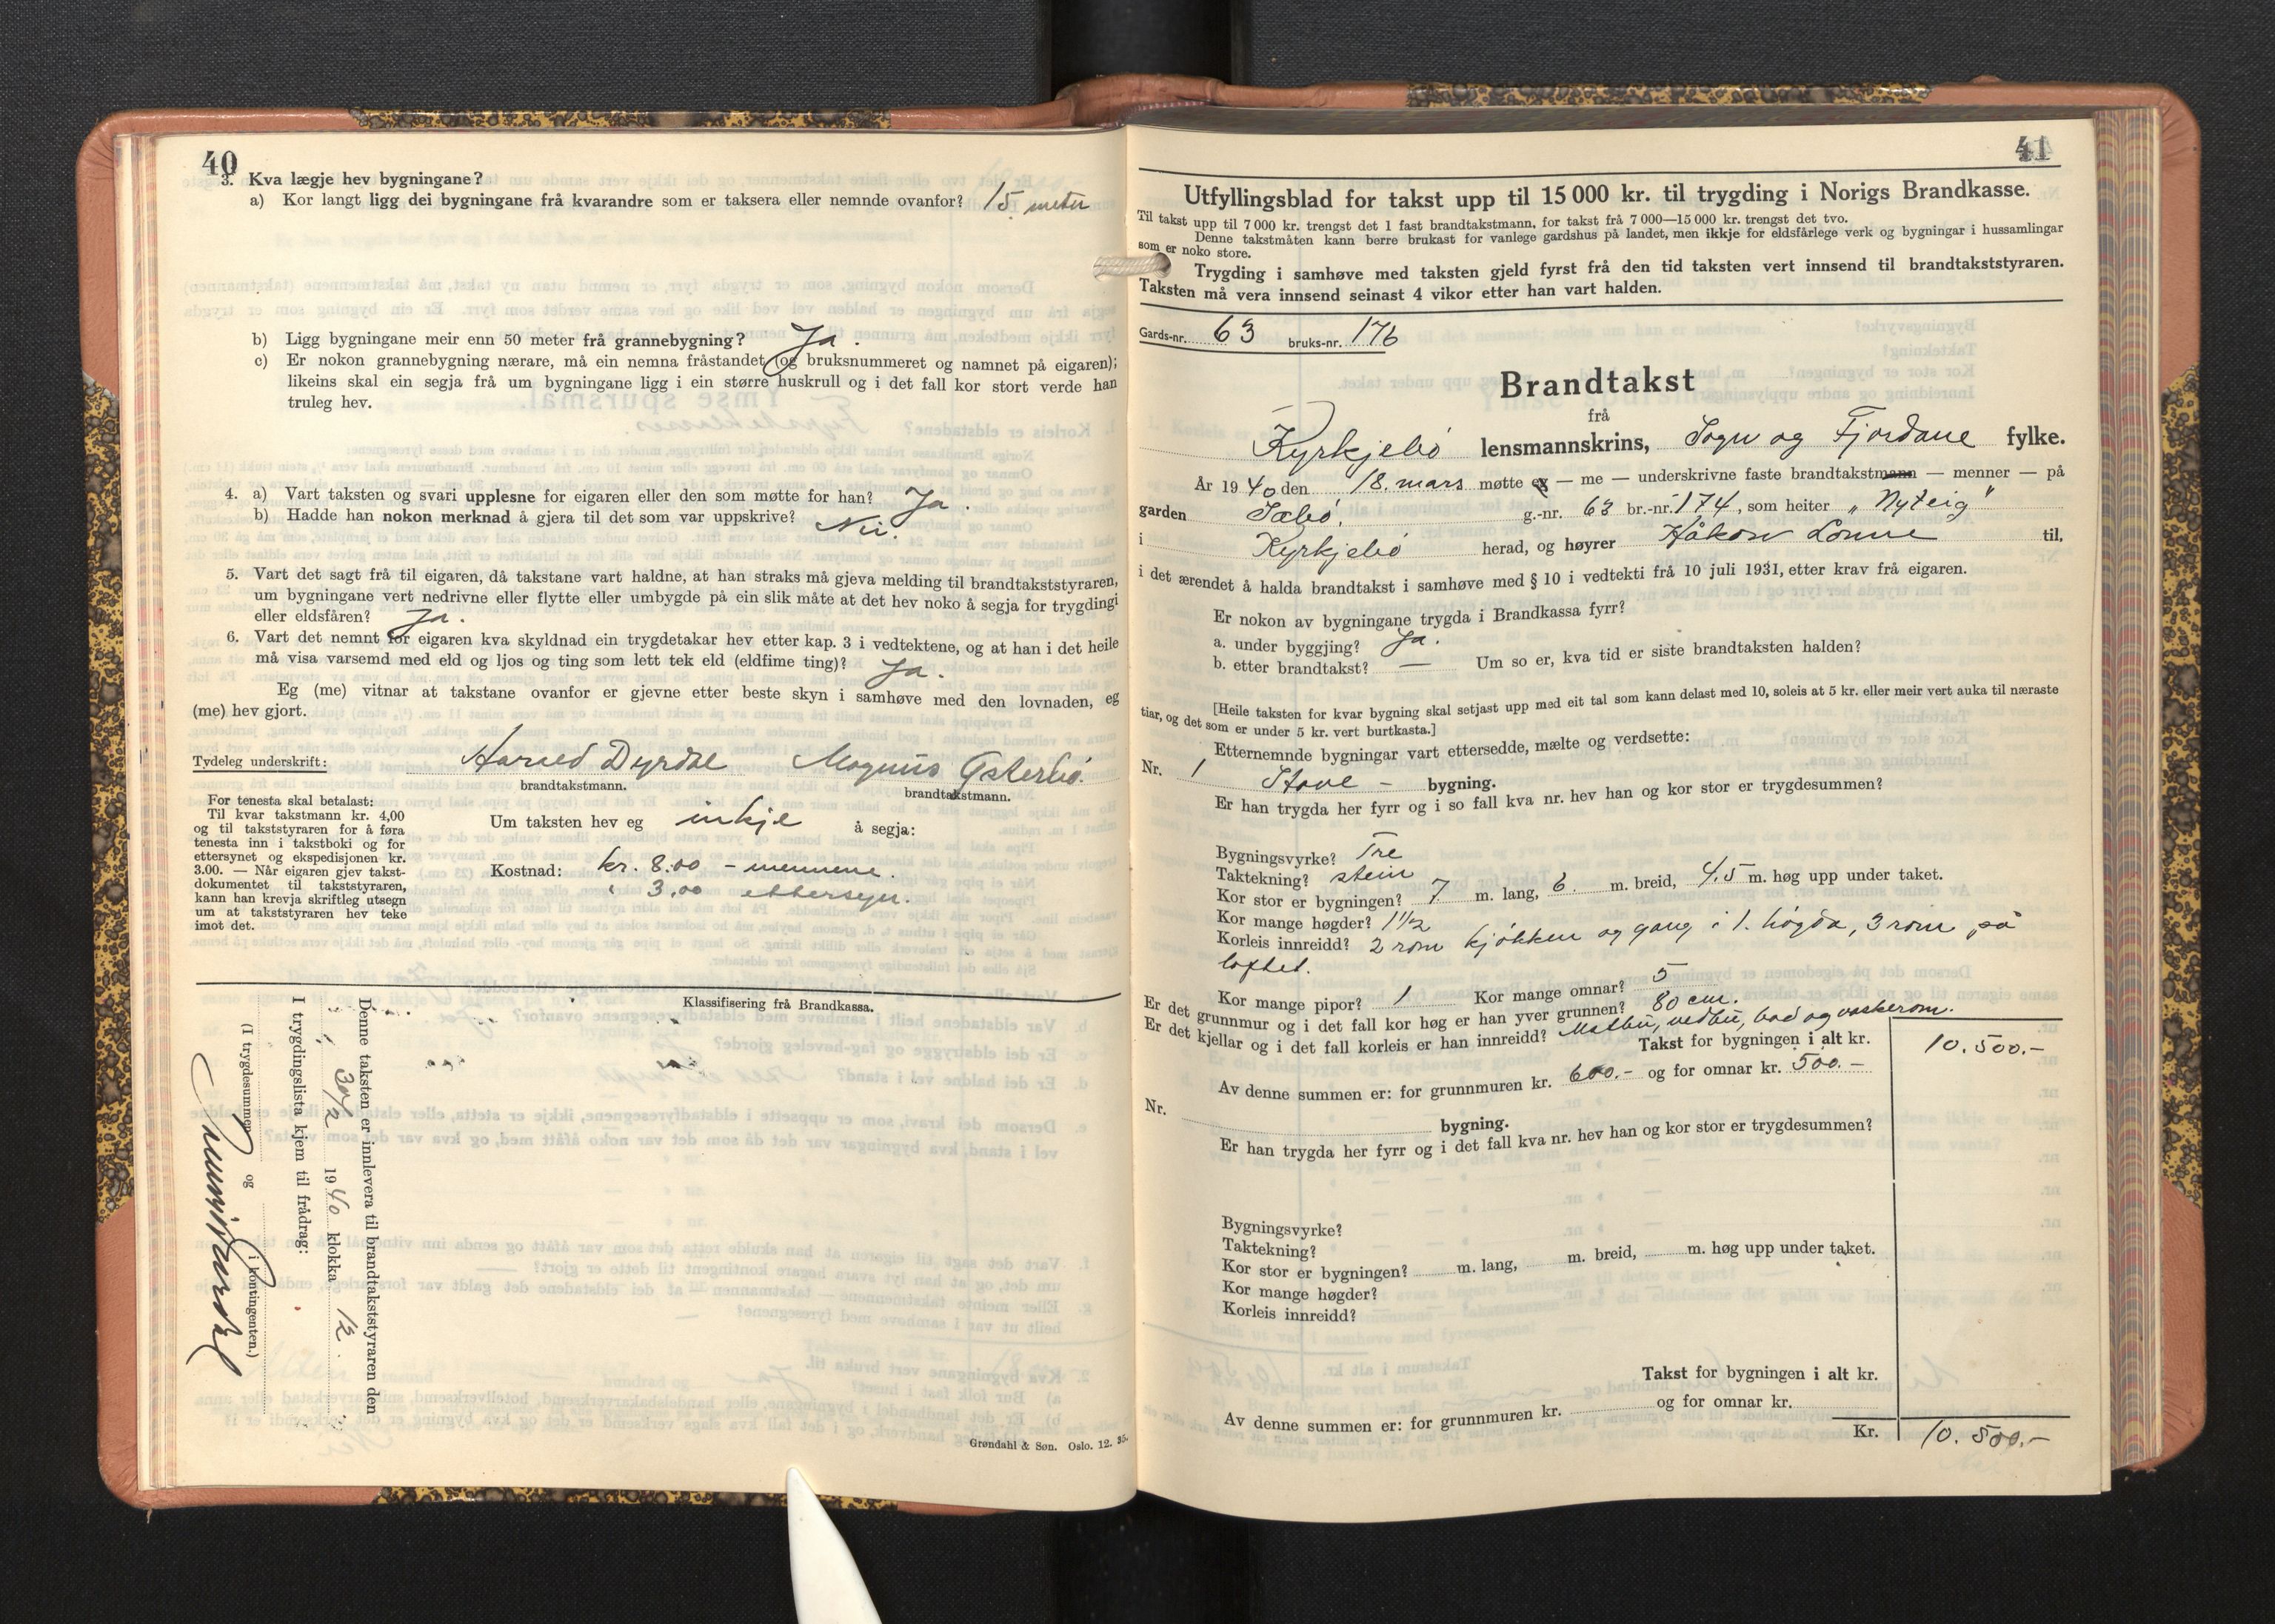 40
3. Kva lægje hev bygningane?
a) Kor langt ligg dei bygningane frå kvarandre som er taksera eller nemnde ovanfor? 15 meter
b) Ligg bygningane meir enn 50 meter frå grannebygning? Ja.
c) Er nokon grannebygning nærare, må ein nemna fråstandet (og bruksnummeret og namnet på eigaren);
likeins skal ein segja frå um bygningane ligg i ein større huskrull og i det fall kor stort verde han
truleg hev.
4. a) Vart taksten og svari upplesne for eigaren eller den som møtte for han? Ja.
b) Hadde han nokon merknad å gjera til det som var uppskrive? Nei.
5. Vart det sagt frå til eigaren, då takstane vart haldne, at han straks må gjeva melding til brandtakststyraren,
um bygningane vert nedrivne eller flytte eller umbygde på ein slik måte at det hev noko å segja for trygdingi
eller eldsfåren? Ja.
6. Vart det nemnt for eigaren kva skyldnad ein trygdetakar hev etter kap. 3 i vedtektene, og at han i det heile
må visa varsemd med eld og ljos og ting som lett tek eld (eldfime ting)? Ja.
Eg (me) vitnar at takstane ovanfor er gjevne etter beste skyn i samhøve med den lovnaden, eg
(me) hev gjort.
Tydeleg underskrift: Harald Dyrdal Magnus Østerbø.
brandtakstmann. brandtakstmann.
For tenesta skal betalast:
Til kvar takstmann kr. 4,00
og til takststyraren for å føra
tenesta inn i takstboki og for
ettersynet og ekspedisjonen kr.
3.00. — Når eigaren gjev takst-
dokumentet til takststyraren,
kann han krevja skriftleg utsegn
um at takststyraren hev teke
imot det.
Um taksten hev eg inkje å segja:
Kostnad: kr. 8.00 - mennene.
" 3.00 ettersyn.
Klassifisering frå Brandkassa.
Denne taksten er innlevera til brandtakststyraren den
30/3 1940 klokka 12.
I trygdingslista kjem til frådrag:
(I trygdesummen og i kontingenten.)
Grøndahl & Søn. Oslo. 12. 35.
41
Utfyllingsblad for takst upp til 15 000 kr. til trygding i Norigs Brandkasse.
Til takst upp til 7 000 kr. trengst det 1 fast brandtakstmann, for takst frå 7 000—15 000 kr. trengst det tvo.
Denne takstmåten kann berre brukast for vanlege gardshus på landet, men ikkje for eldsfårlege verk og bygningar i hussamlingar
som er noko store.
Trygding i samhøve med taksten gjeld fyrst frå den tid taksten vert innsend til brandtakststyraren.
Taksten må vera innsend seinast 4 vikor etter han vart halden.
Gards-nr. 63 bruks-nr. 176
Brandtakst
frå
Kyrkjebø lensmannskrins, Sogn og Fjordane fylke.
År 1940 den 18. mars møtte eg — me — underskrivne faste brandtakstmann — menner — på
garden Sæbø, g.-nr. 63 br.-nr. 174, som heiter „Nyteig"
i Kyrkjebø herad, og høyrer Håkon Lonne til,
i det ærendet å halda brandtakst i samhøve med § 10 i vedtekti frå 10 juli 1931, etter krav frå eigaren.
Er nokon av bygningane trygda i Brandkassa fyrr?
a. under byggjing? Ja.
b. etter brandtakst? — Um so er, kva tid er siste brandtaksten halden?
[Heile taksten for kvar bygning skal setjast upp med eit tal som kann delast med 10, soleis at 5 kr. eller meir vert auka til næraste
tiar, og det som er under 5 kr. vert burtkasta.]
Etternemnde bygningar vart ettersedde, mælte og verdsette:
Nr. 1 Stove - bygning.
Er han trygda her fyrr og i so fall kva nr. hev han og kor stor er trygdesummen?
Bygningsvyrke? Tre
Taktekning? stein
Kor stor er bygningen? 7 m. lang, 6. m. breid, 4.5 m. høg upp under taket.
Kor mange høgder? 1 1/2
Korleis innreidd? 2 rom kjøkken og gang i 1. høgda, 3 rom på
loftet.
Kor mange pipor? 1 Kor mange omnar? 5
Er det grunnmur og i det fall kor høg er han yver grunnen? 80 cm.
Er det kjellar og i det fall korleis er han innreidd? Matbu, vedbu, bad og vaskerom.
Takst for bygningen i alt kr. 10.500.-
Av denne summen er: for grunnmuren kr. 600.- og for omnar kr. 500.-
Nr. bygning.
Er han trygda her fyrr og i det fall kva nr. hev han og kor stor er trygdesummen?
Bygningsvyrke?
Taktekning?
Kor stor er bygningen? m. lang, m. breid, m. høg upp under taket.
Kor mange høgder?
Korleis innreidd?
Takst for bygningen i alt kr.
Av denne summen er: for grunnmuren kr. og for omnar kr.
Kr. 10.500.-